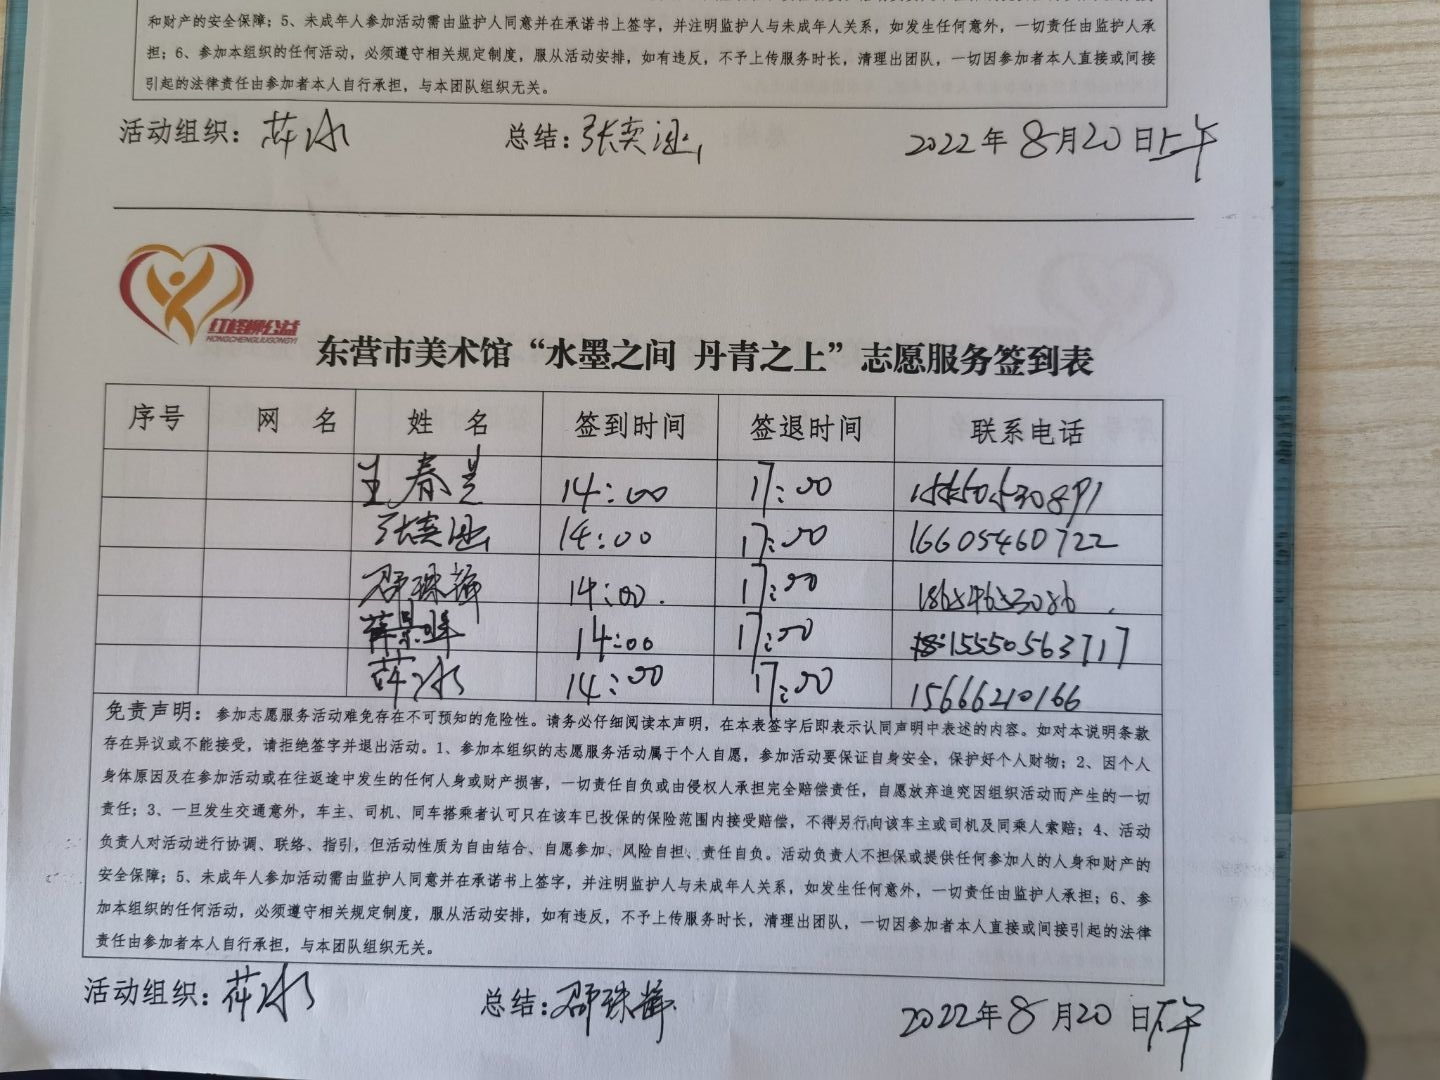 和财产的安全保障；5、未成年人参加活动需由监护人同意并在承诺书上签字，并注明监护人与未成年人关系，如发生任何意外，一切责任由监护人承
担；6、参加本组织的任何活动，必须遵守相关规定制度，服从活动安排，如有违反，不予上传服务时长，清理出团队，一切因参加者本人直接或间接
引起的法律责任由参加者本人自行承担，与本团队组织无关。
活动组织： 总结： 2022年8月20日上午
红柽柳公益
HONGCHENGLIUGONGYI
东营市美术馆“水墨之间 丹青之上”志愿服务签到表
序号 网 名 姓 名 签到时间 签退时间 联系电话
王春兰 14:00 17:00
14:00 17:00 16605460722
邵珠辉 14:00. 17:00 18654653086.
薛景晖 14:00 17:00 15550563717
14:00 17:00 15666210166
免责声明：参加志愿服务活动难免存在不可预知的危险性。请务必仔细阅读本声明，在本表签字后即表示认同声明中表述的内容。如对本说明条款
存在异议或不能接受，请拒绝签字并退出活动。1、参加本组织的志愿服务活动属于个人自愿，参加活动要保证自身安全，保护好个人财物；2、因个人
身体原因及在参加活动或在往返途中发生的任何人身或财产损害，一切责任自负或由侵权人承担完全赔偿责任，自愿放弃追究因组织活动而产生的一切
责任；3、一旦发生交通意外，车主、司机、同车搭乘者认可只在该车已投保的保险范围内接受赔偿，不得另行向该车主或司机及同乘人索赔；4、活动
负责人对活动进行协调、联络、指引，但活动性质为自由结合、自愿参加、风险自担、责任自负。活动负责人不担保或提供任何参加人的人身和财产的
安全保障；5、未成年人参加活动需由监护人同意并在承诺书上签字，并注明监护人与未成年人关系，如发生任何意外，一切责任由监护人承担；6、参
加本组织的任何活动，必须遵守相关规定制度，服从活动安排，如有违反，不予上传服务时长，清理出团队，一切因参加者本人直接或间接引起的法律
责任由参加者本人自行承担，与本团队组织无关。
活动组织： 总结：邵珠辉 2022年8月20日下午